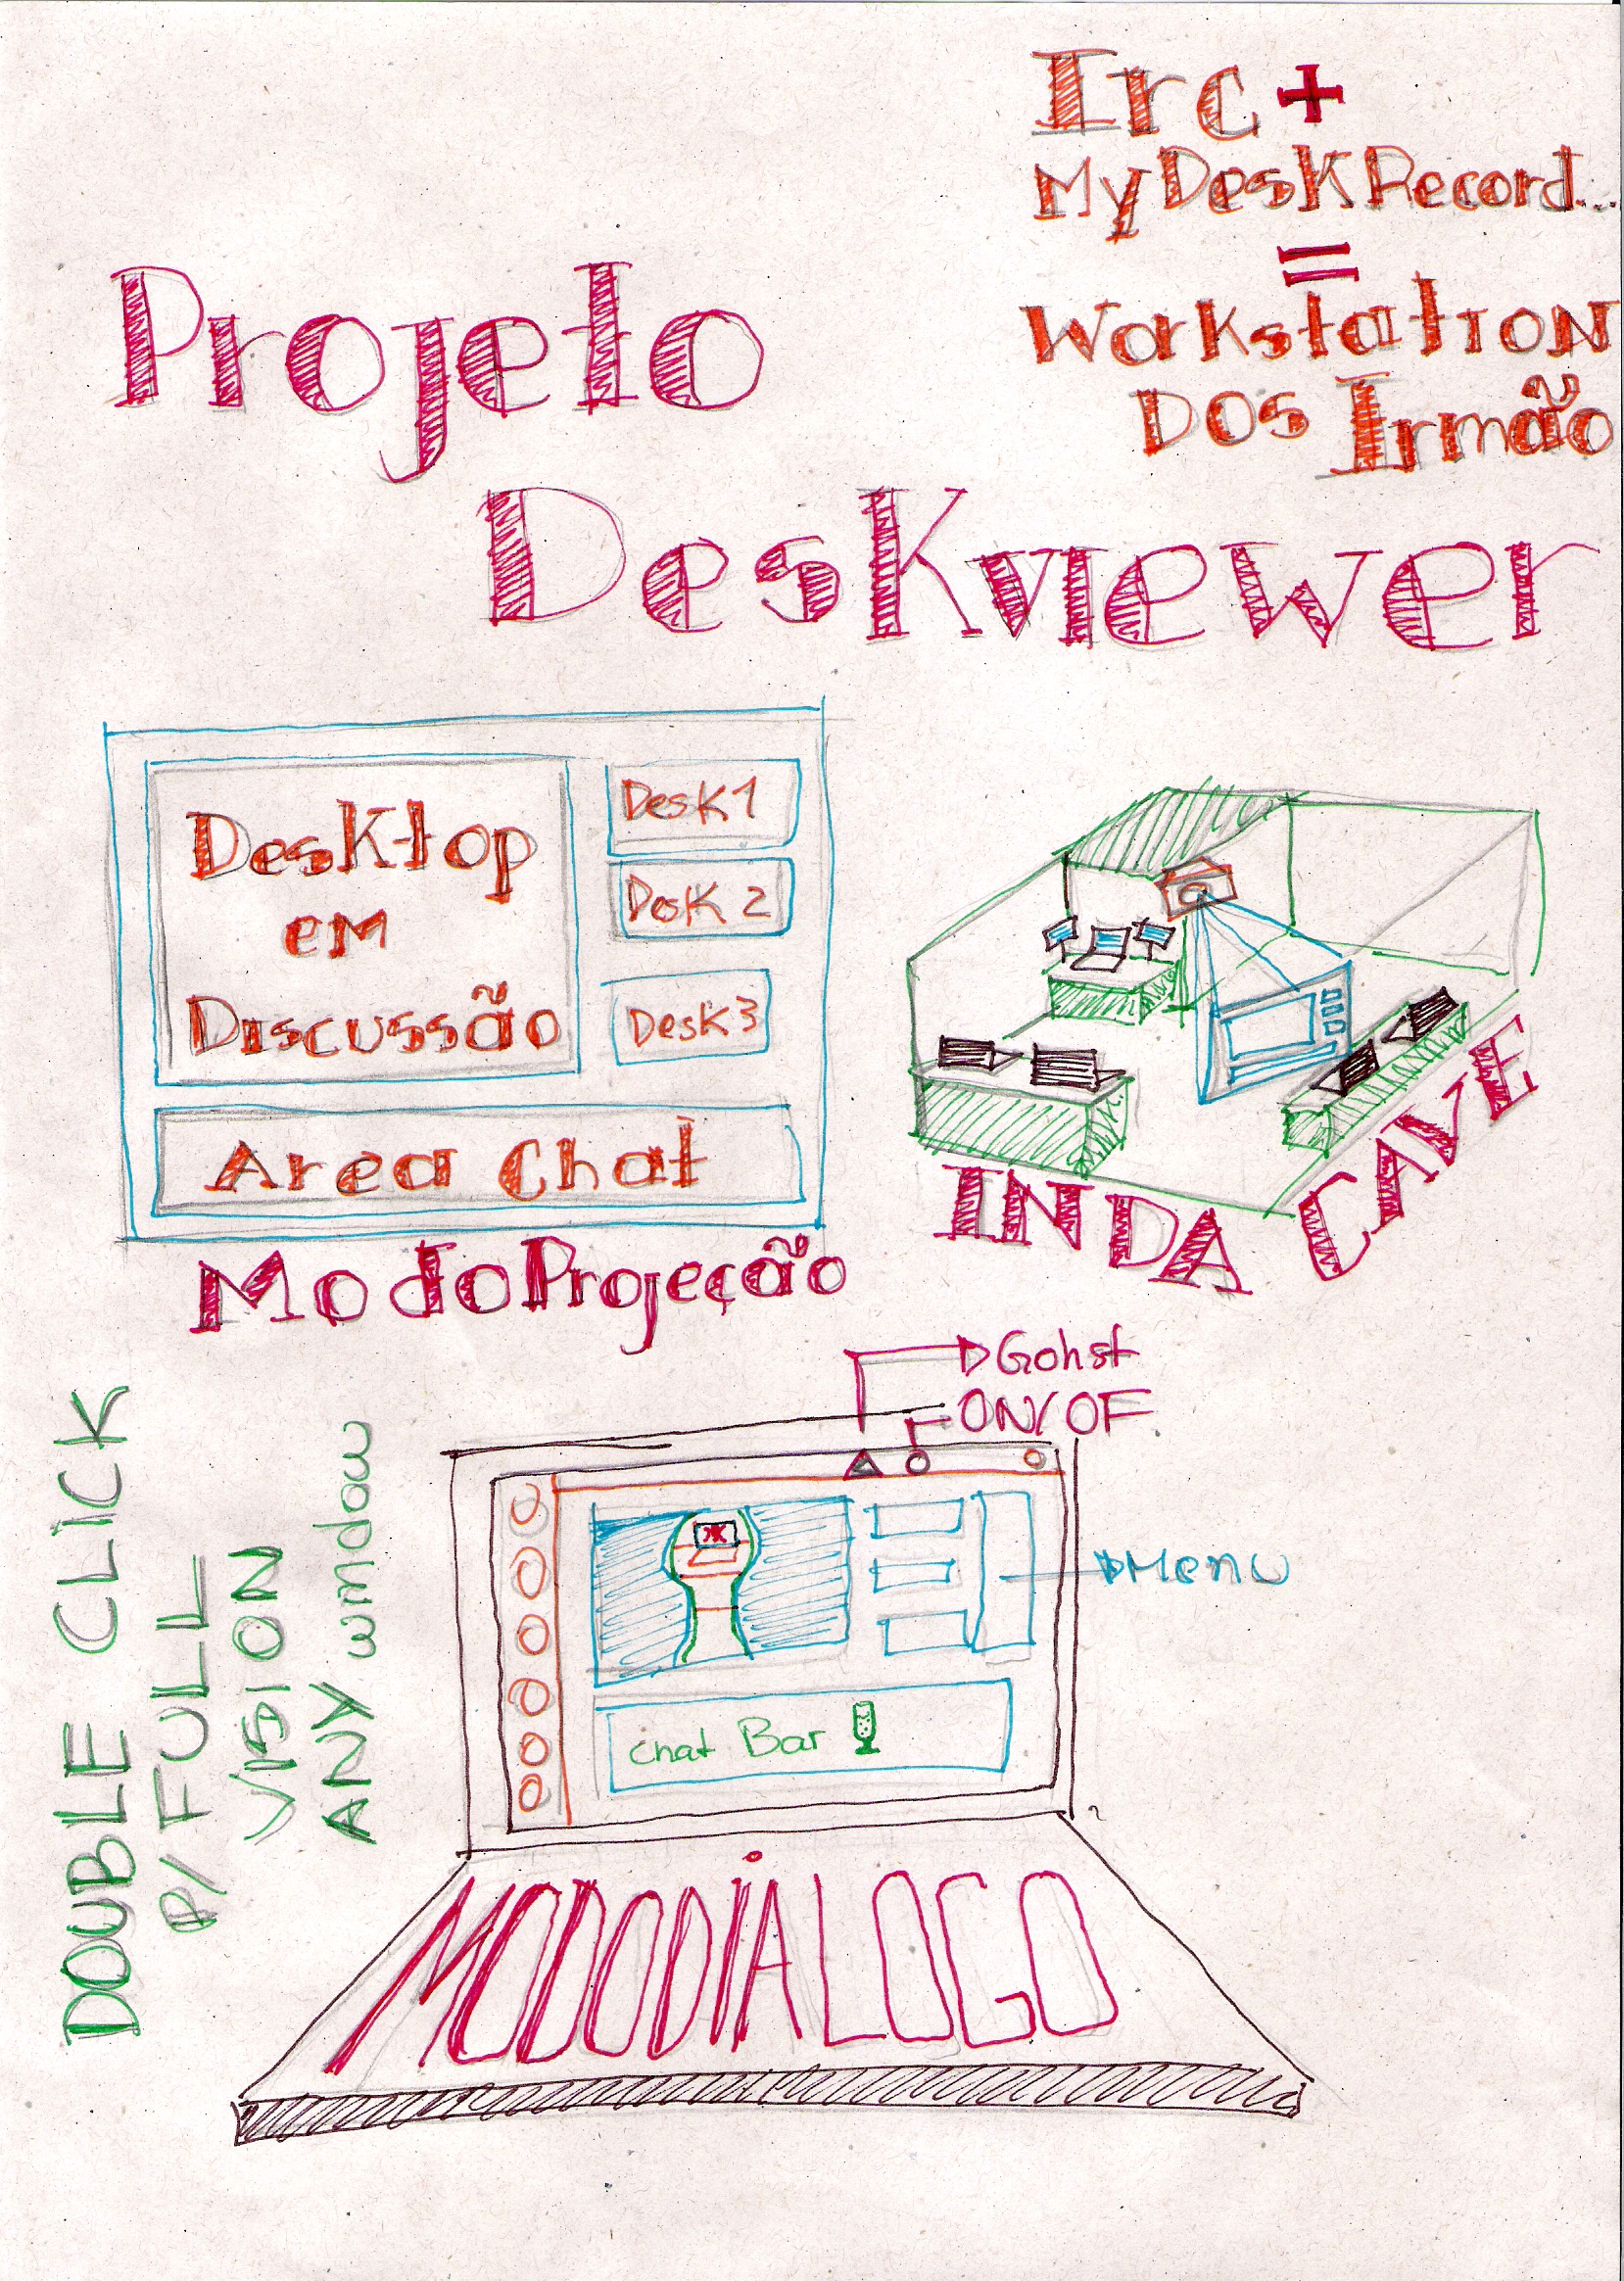 Irc +
MyDeskRecord...
=
Workstation
DOS Irmão
Projeto
Deskviewer
Desktop
em
Discussão
Desk1
DesK 2
Desk3
Area Chat
Modo Projeção
INDA CAVE
Gohst
ON/OF
Menu
chat Bar
DOUBLE CLICK
P/ FULL
VISION
ANY window
MODODIALOGO